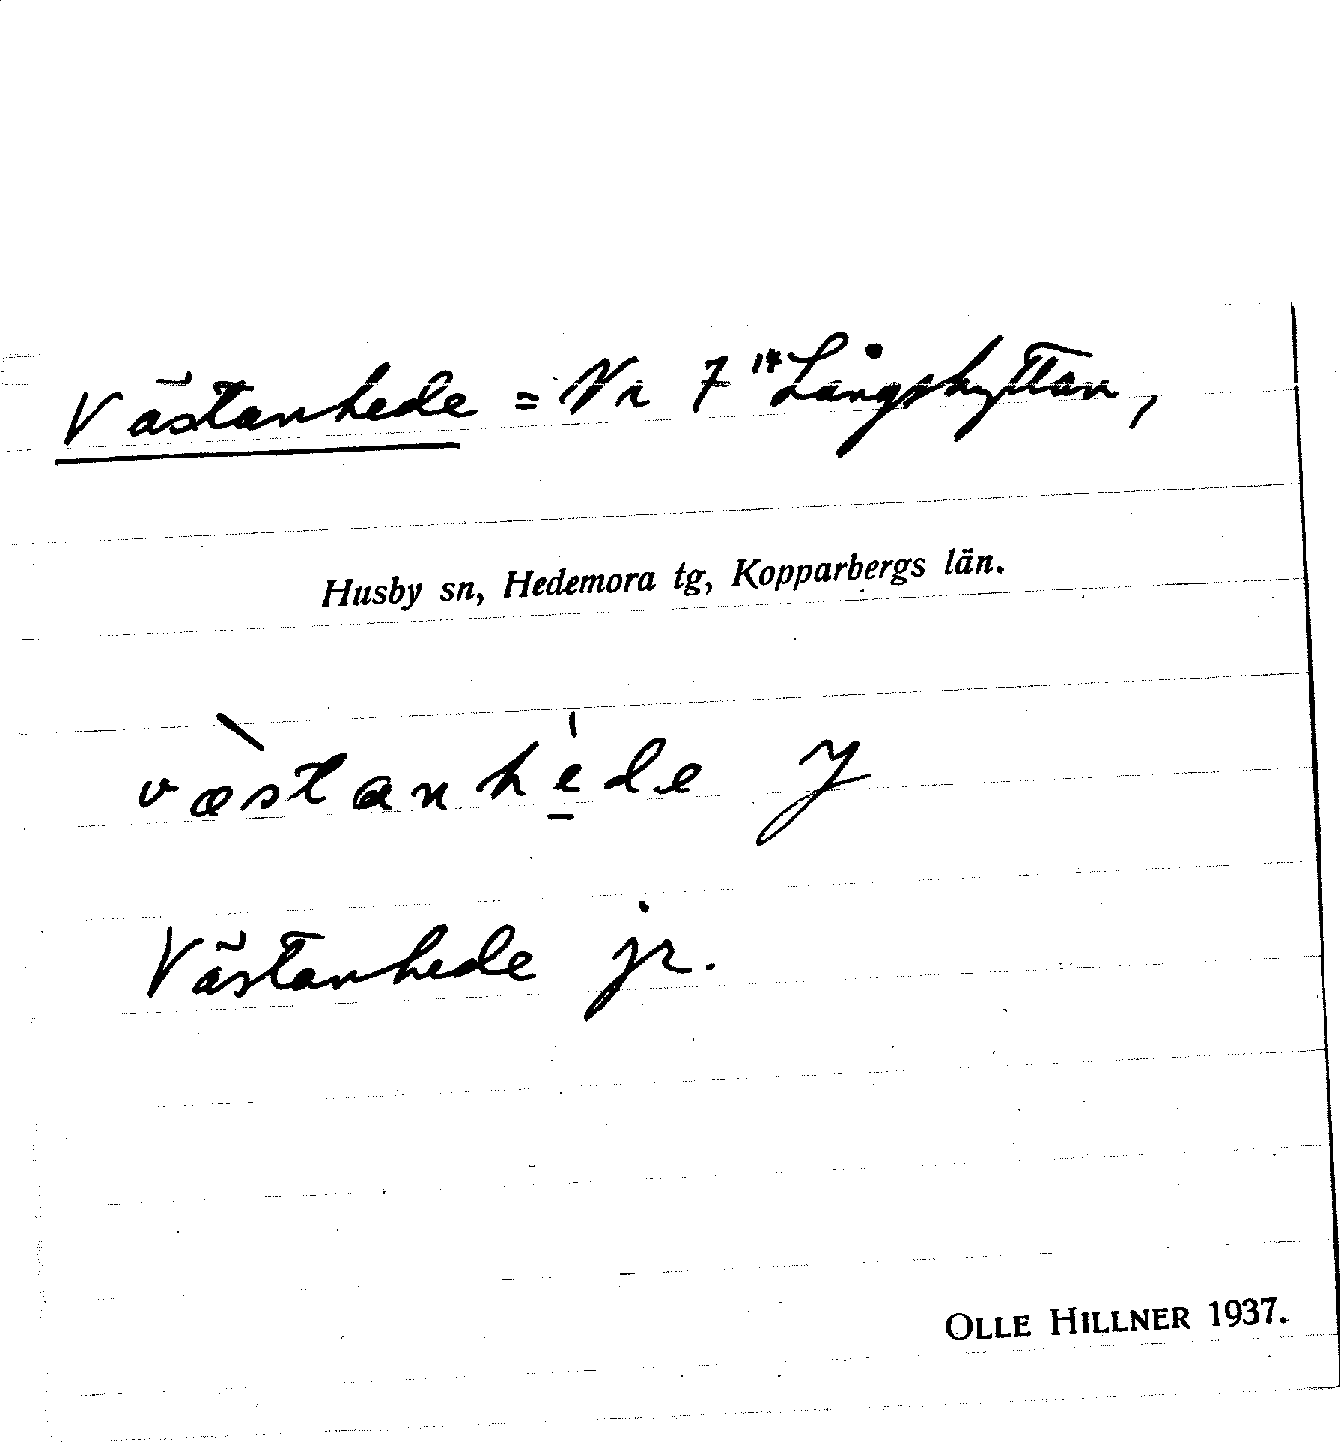 Västanhede = Nr 7 14 Långshyttan,
Husby sn, Hedemora tg, Kopparbergs län.
væ̀stanhe̱̍de
Västanhede jr.
OLLE HILLNER 1937.